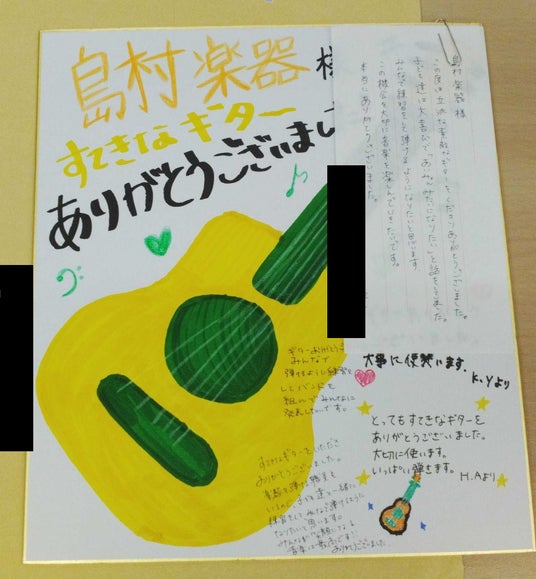 島村楽器 様
すてきなギター
ありがとうございまし
島村楽器 様
この度は立派な素敵なギターをくださりありがとうございました。
子ども達は大喜びで「あいみょんみたいになりたい」と話をしてました。
みんなで練習をして弾けるようになりたいと思います
この機会を大切に音楽を楽しんでいきたいです。
本当にありがとうございました。
ギターありがとう
みんなで
弾けるように練習を
してバンドを
組んでみんなに
発表したいです。
大事に使います。
K.Yより
とってもすてきなギターを
ありがとうございました。
大切に使います。
いっぱい弾きます。
H.Aより
すてきなギターをいただき
ありがとうございました。
楽器を弾ける職員も
いるので、子ども達と一緒に
練習をして、みんなで弾けるように
なりたいと思います。
みんなが笑顔になる
音楽は最高です!
ありがとうございました